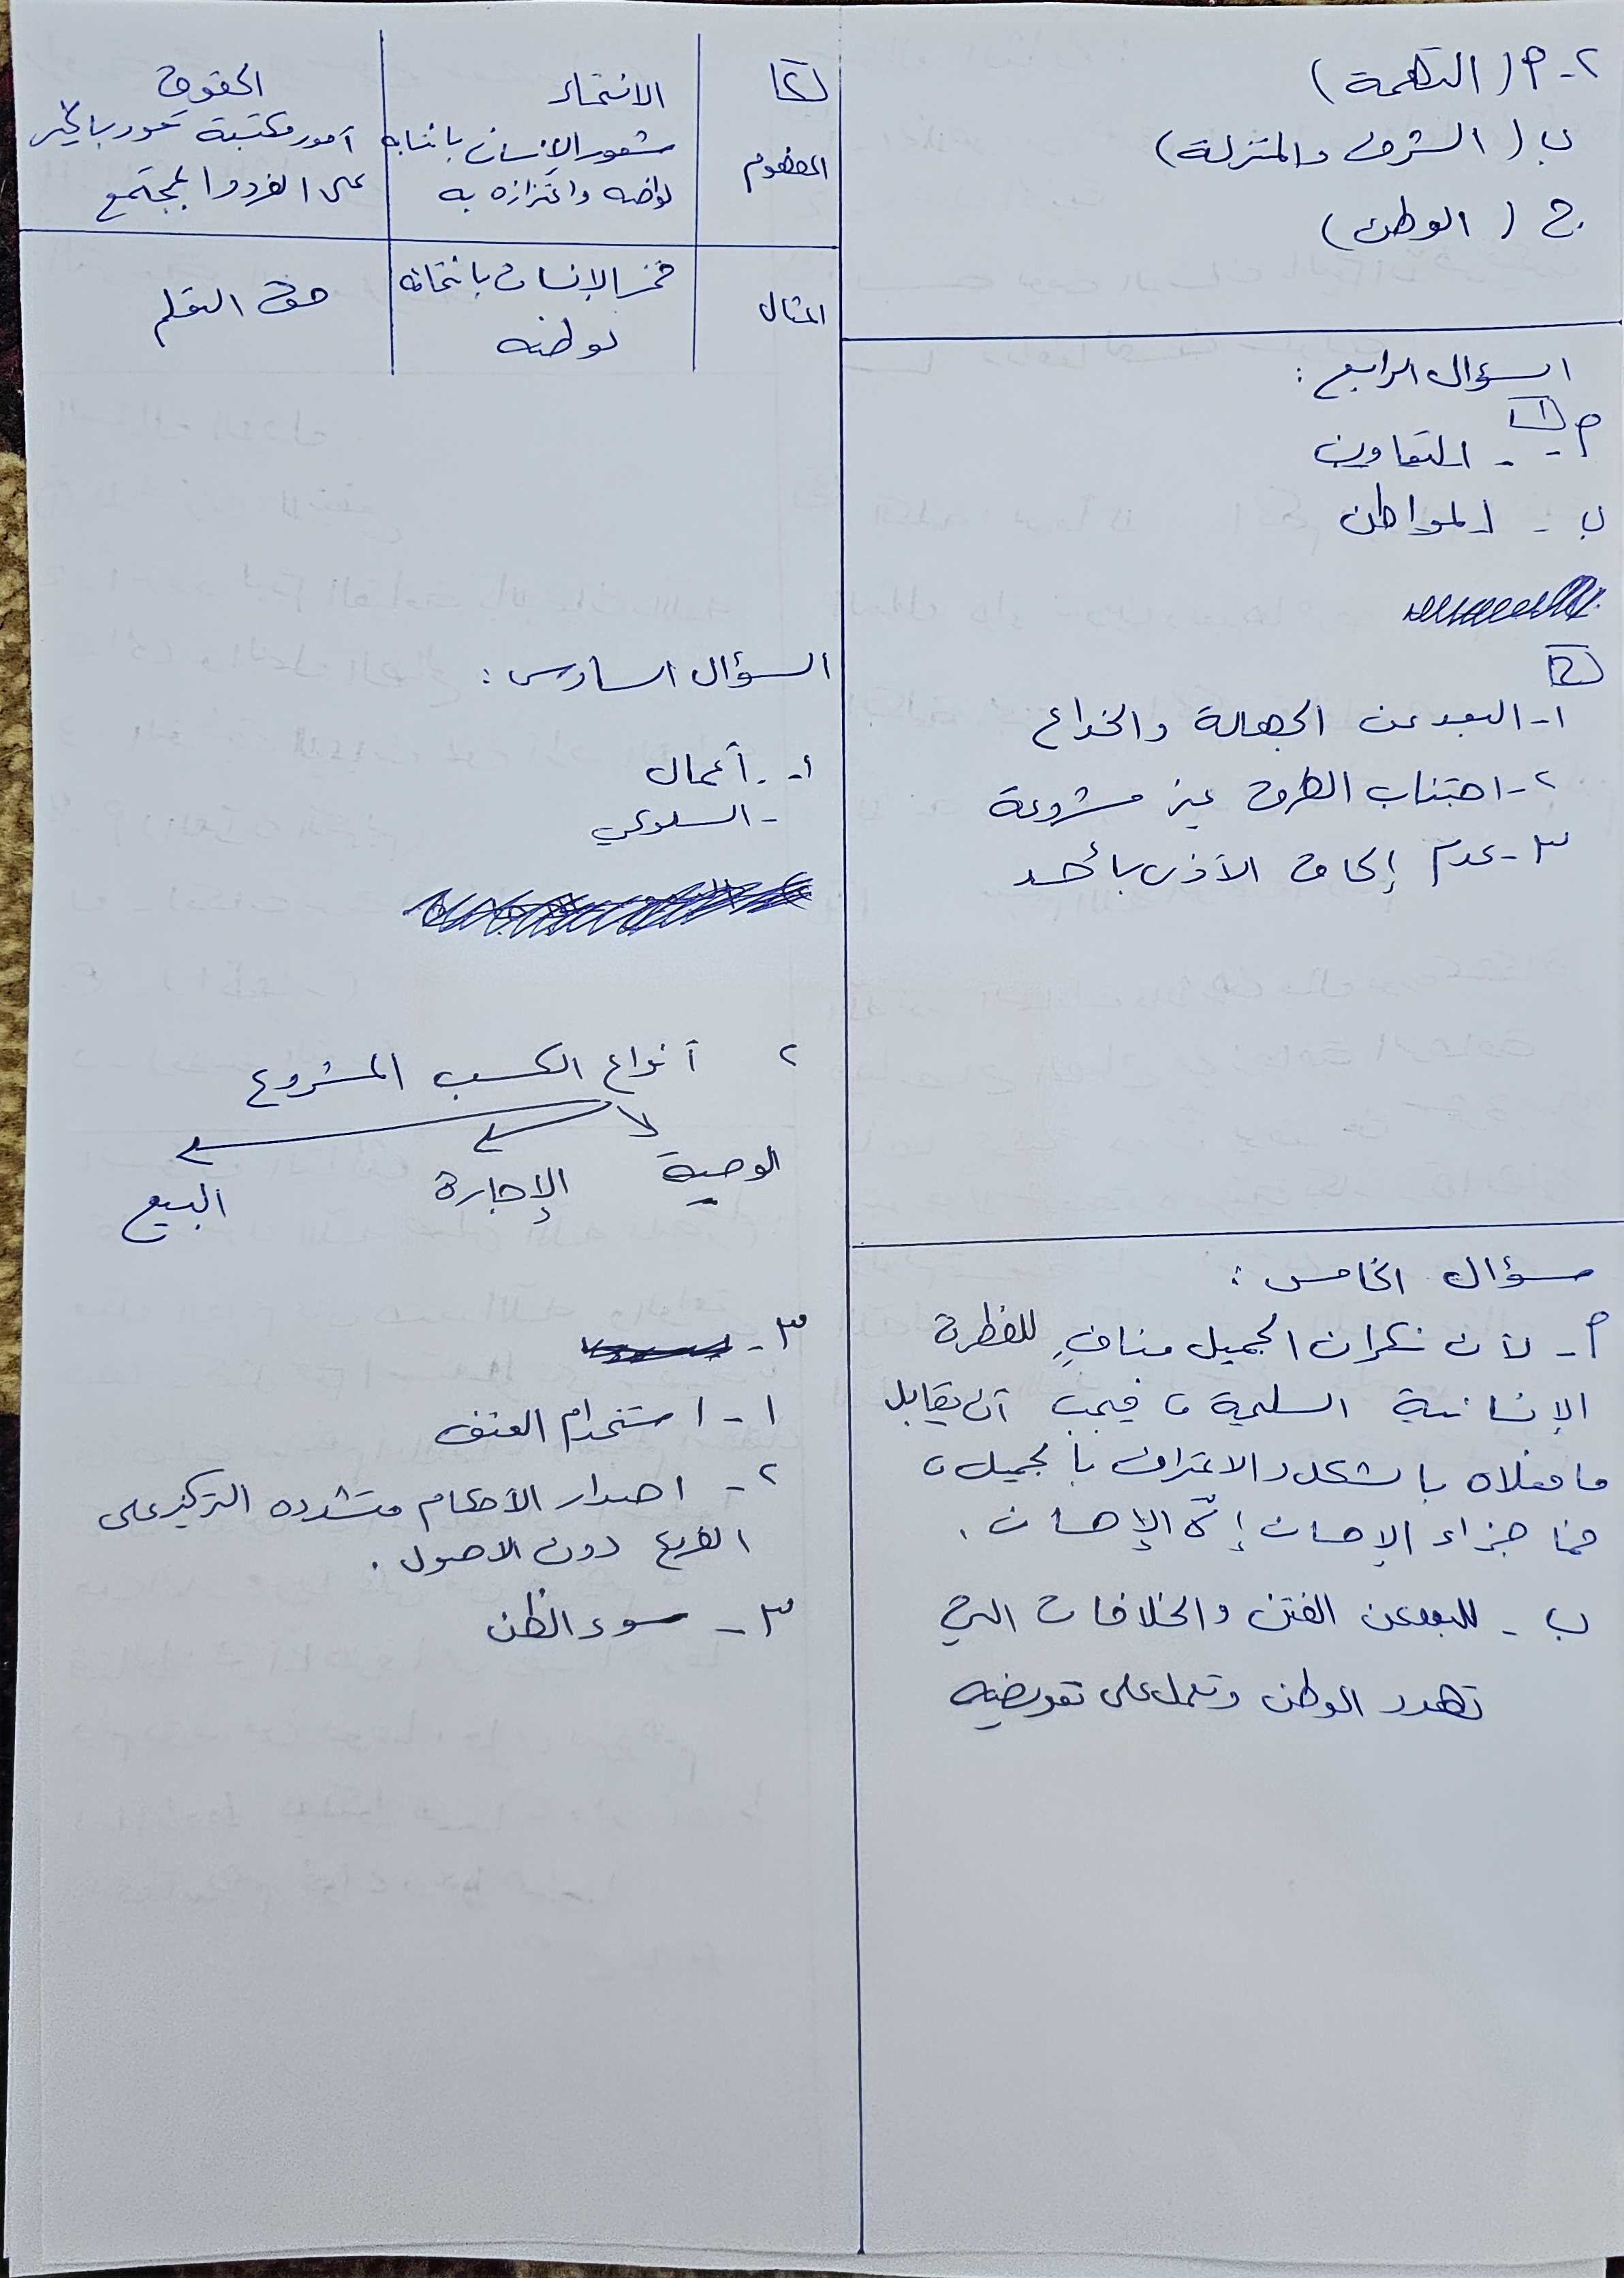 ٢- أ ( التهمة )
ب ( الشرف والمنزلة )
ج ( الوطن )
السؤال الرابع :
١
أ - التعاون
ب - المواطن
٢
١- البعد عن الجهالة والخداع
٢- اجتناب الطرق غير مشروعة
٣- عدم إلحاق الأذى بأحد
سؤال الخامس :
أ- لأن نكران الجميل منافٍ للفطرة
الإنسانية السليمة، فيجب أن يقابل
ما فعلاه بالشكر والاعتراف بالجميل،
فما جزاء الإحسان إلّا الإحسان.
ب - للبعد عن الفتن والخلافات التي
تهدد الوطن وتعمل على تقويضه
٢ الانتماء الحقوق
المفهوم شعور الإنسان بانتمائه أمور مكتسبة تعود بالخير
لوطنه واعتزازه به على الفرد والمجتمع
المثال فخر الإنسان بانتمائه حق التعلم
لوطنه
السؤال السادس :
١- . أعمال
- السلوكي
٢ أنواع الكسب المشروع
الوصية الإجارة البيع
٣-
١- استخدام العنف
٢- اصدار الأحكام متشدده التركيز على
الفروع دون الاصول .
٣- سوء الظن